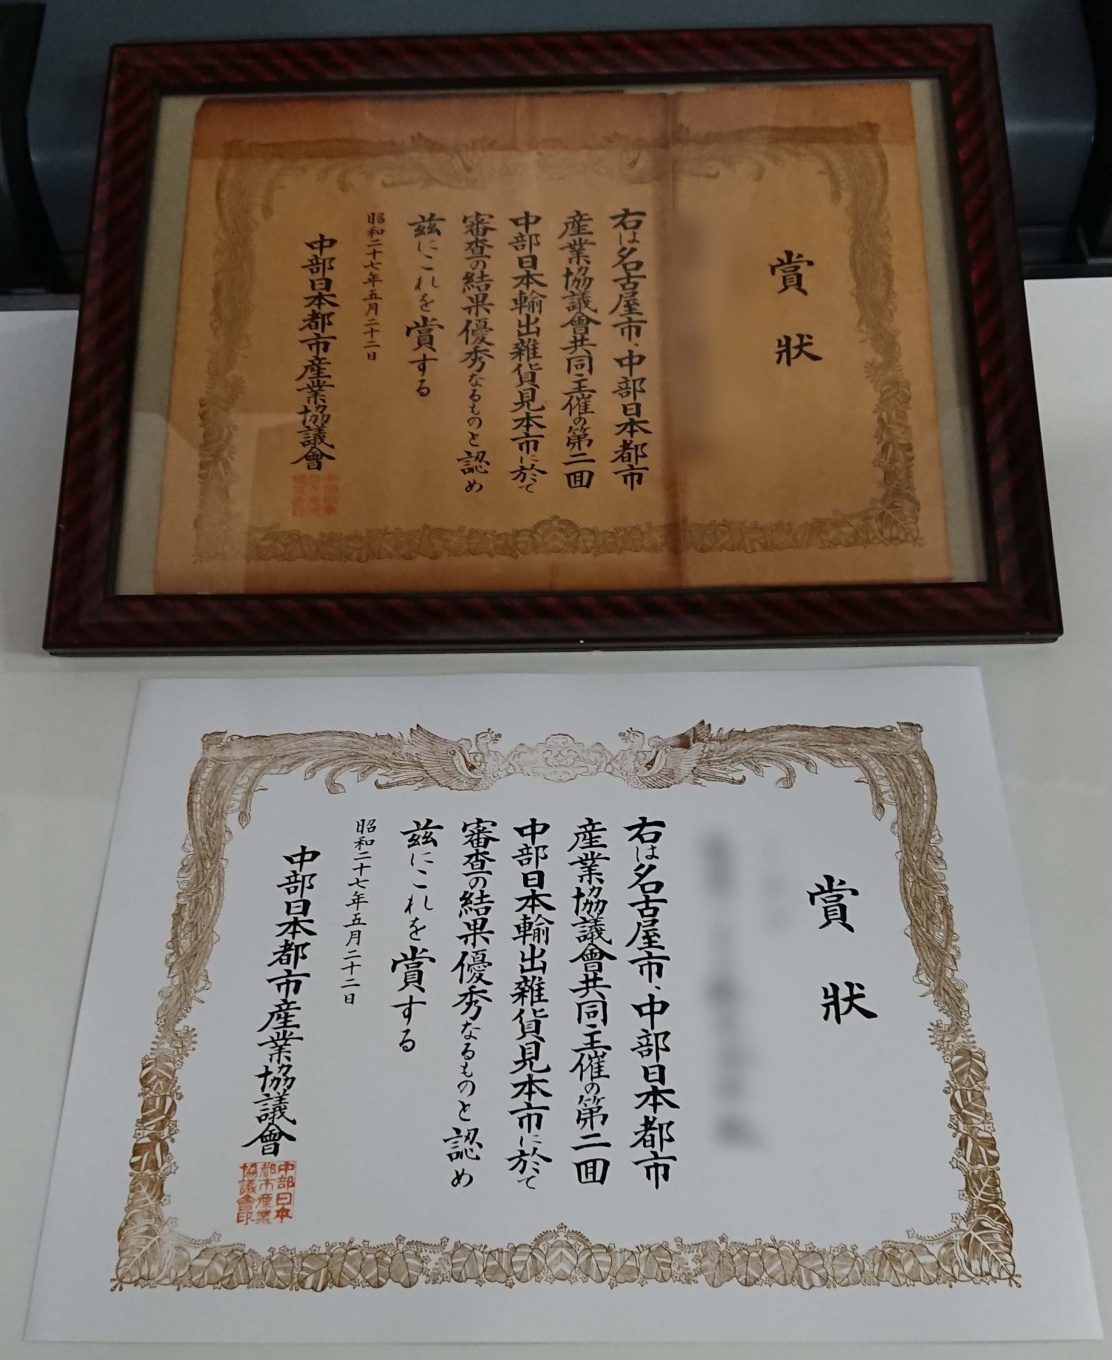 賞狀
右は名古屋市、中部日本都市
産業協議會共同主催の第二囬
中部日本輸出雑貨見本市に於て
審査の結果優秀なるものと認め
茲にこれを賞する
昭和二十七年五月二十二日
中部日本都市産業協議會
賞狀
右は名古屋市、中部日本都市
産業協議會共同主催の第二囬
中部日本輸出雑貨見本市に於て
審査の結果優秀なるものと認め
茲にこれを賞する
昭和二十七年五月二十二日
中部日本都市産業協議會
中部日本
都市産業
協議會印